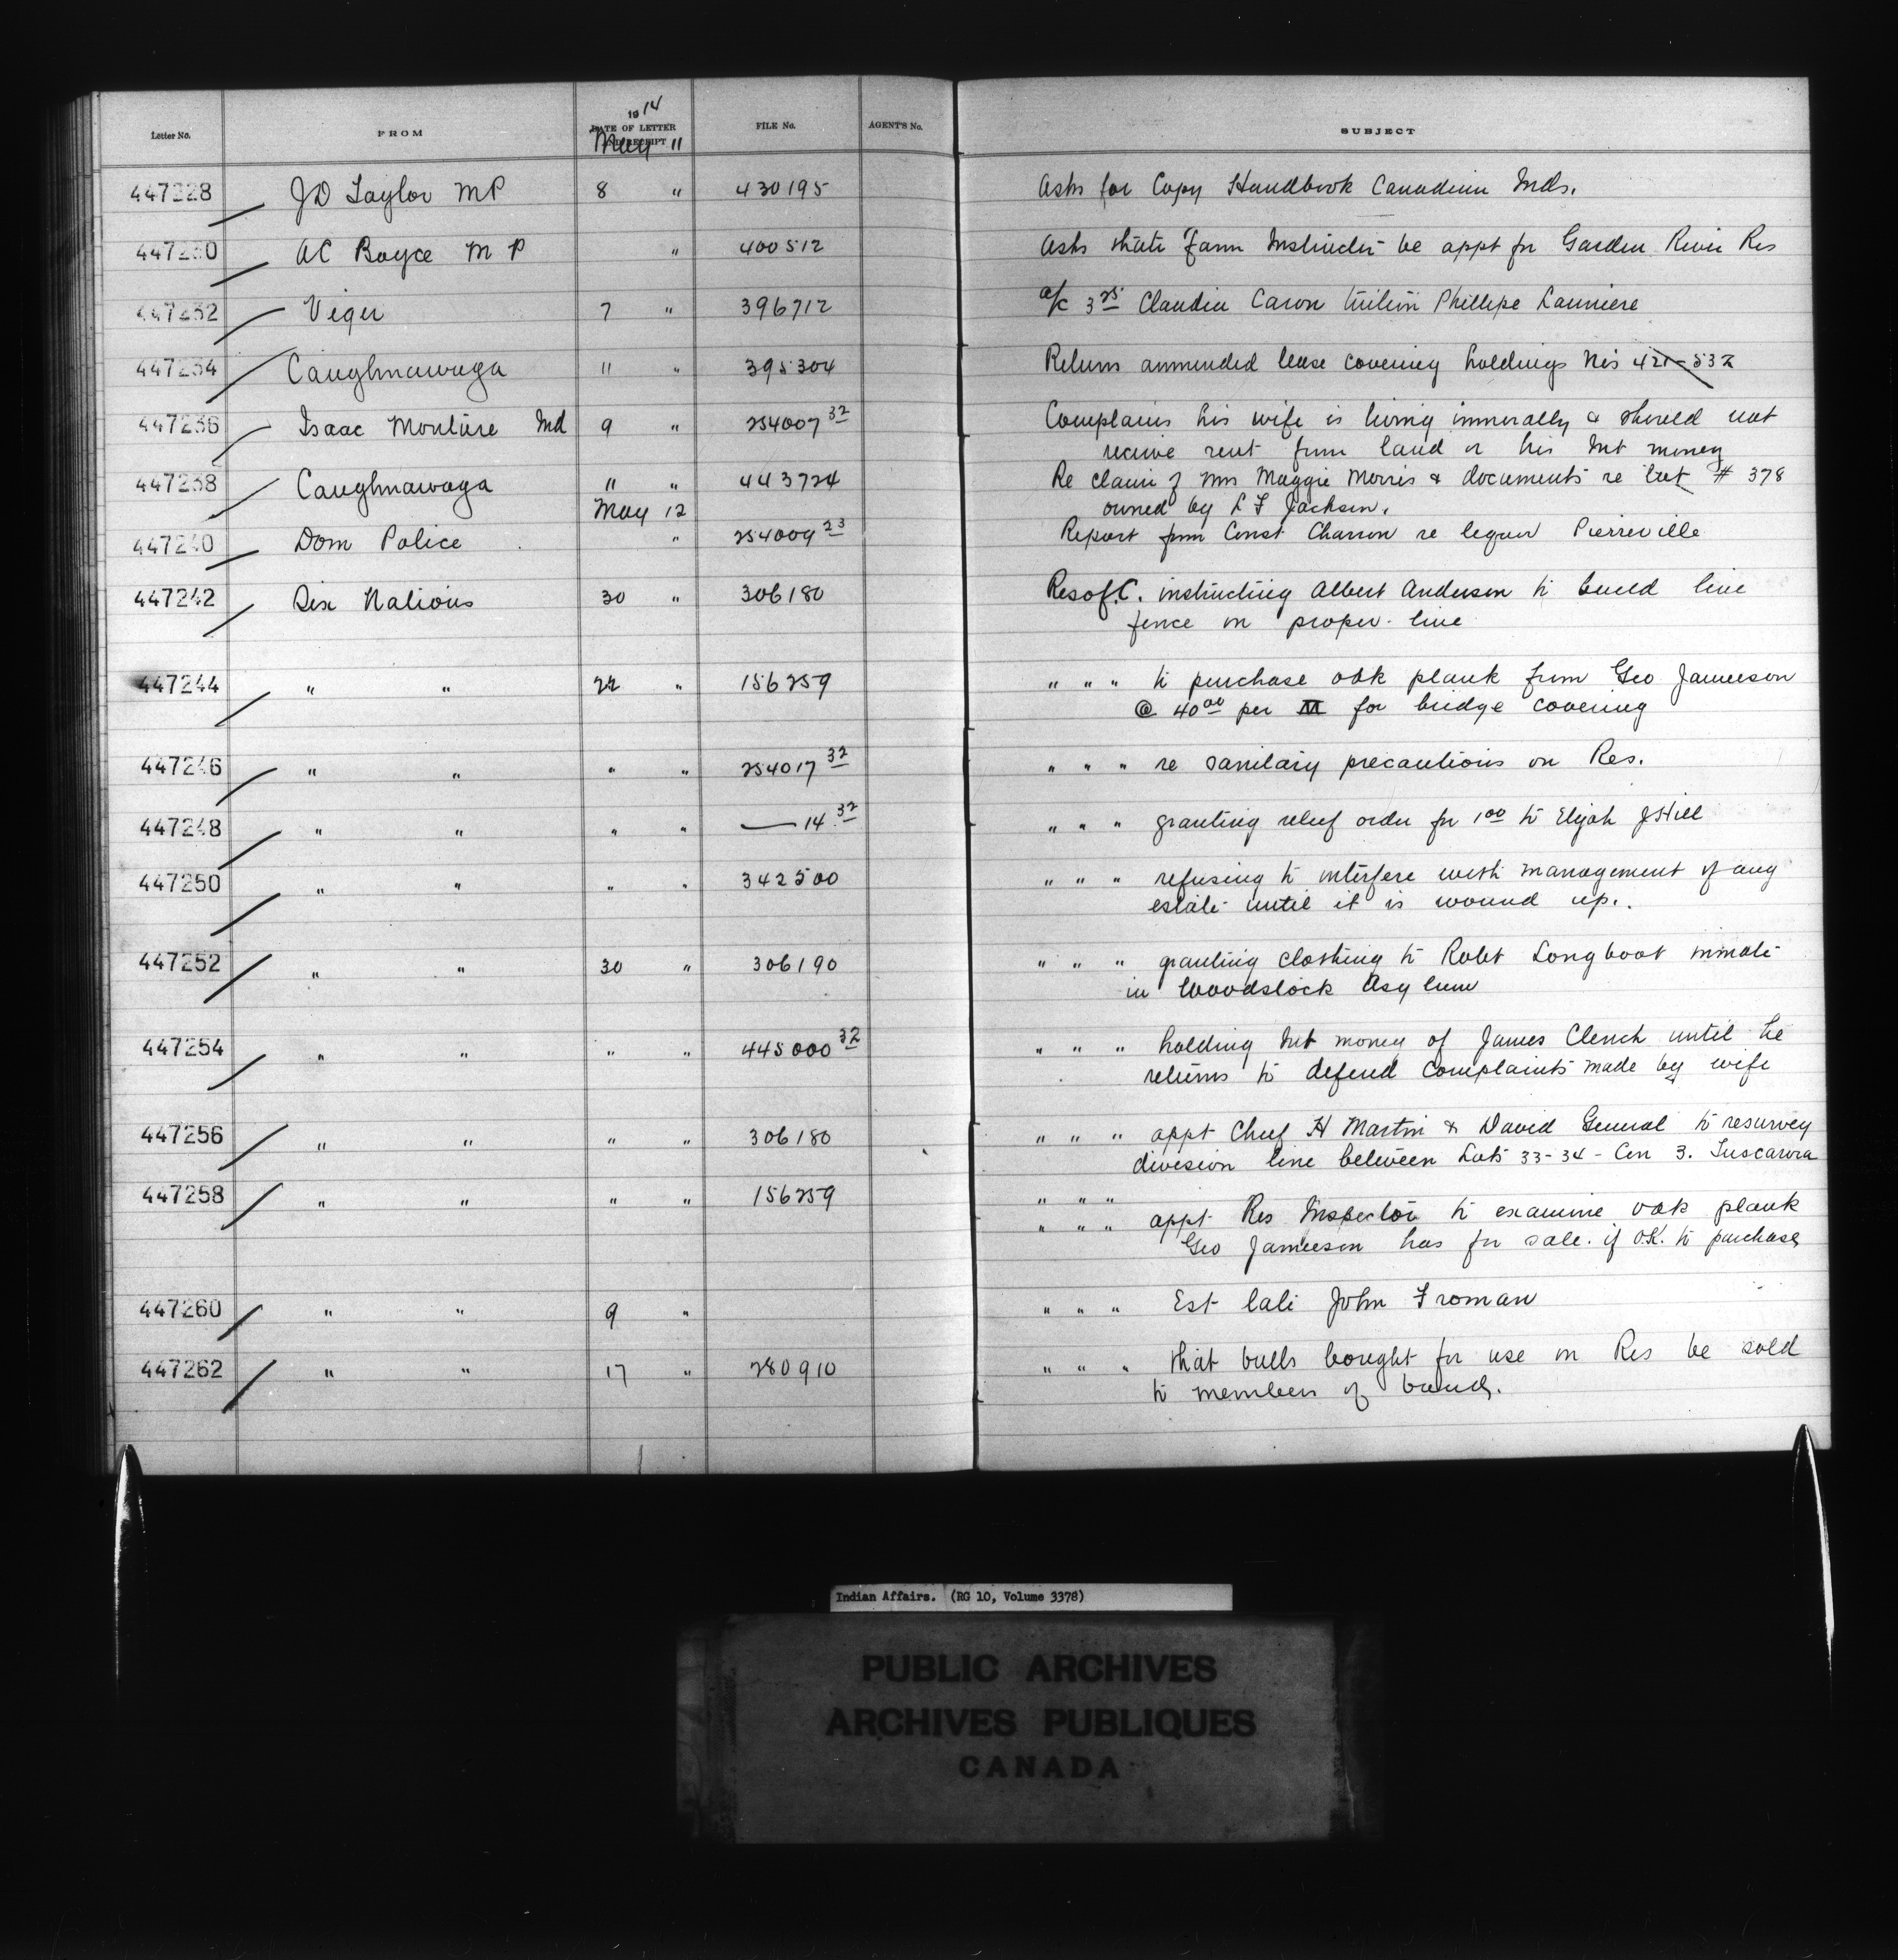 Letter No. FROM 1914 DATE OF LETTER AND RECEIPT FILE No. AGENT'S No. SUBJECT
May 11
447228 JD Taylor MP 8 " 430195 Asks for Copy Handbook Canadian Inds.
447230 AC Boyce M P " 400512 Asks that Farm Instructor be appt for Garden River Res
447232 Viger 7 " 396712 a/c 3 25 Claudia Caron tuition Phillipe Launiere
447234 Caughnawaga 11 " 395304 Returns ammended lease covering holdings Nos 421-532
447236 Isaac Monture Ind 9 " 254007 32 Complains his wife is living immorally & should not
receive rent from land or his Int money
447238 Caughnawaga " " 443724 Re claim of Mrs Maggie Morris & documents re Lot # 378
May 12 owned by L F Jackson.
447240 Dom Police " 254009 23 Report from Const Charron re liquor Pierreville
447242 Six Nations 30 " 306180 Res of C. instructing Albert Anderson to build line
fence on proper line
447244 " " 22 " 156259 " " " to purchase oak plank from Geo Jamieson
@ 40 00 per M for bridge covering
447246 " " " " 254017 32 " " " re sanitary precautions on Res.
447248 " " " " — 14 32 " " " granting relief order for 1 00 to Elijah J Hill
447250 " " " " 342500 " " " refusing to interfere with management of any
estate until it is wound up.
447252 " " 30 " 306190 " " " granting clothing to Robt Longboat inmate
in Woodstock Asylum
447254 " " " " 445000 32 " " " holding Int money of James Clench until he
returns to defend complaints made by wife
447256 " " " " 306180 " " " appt Chief H Martin & David General to resurvey
division line between Lots 33-34 - Con 3. Tuscarora
447258 " " " " 156259 " " "
" " " appt Res Inspector to examine oak plank
Geo Jamieson has for sale. if O.K. to purchase
447260 " " 9 " " " " Est late John Froman
447262 " " 17 " 280910 " " " that bulls bought for use on Res be sold
to members of band.
Indian Affairs. (RG 10, Volume 3378)
PUBLIC ARCHIVES
ARCHIVES PUBLIQUES
CANADA